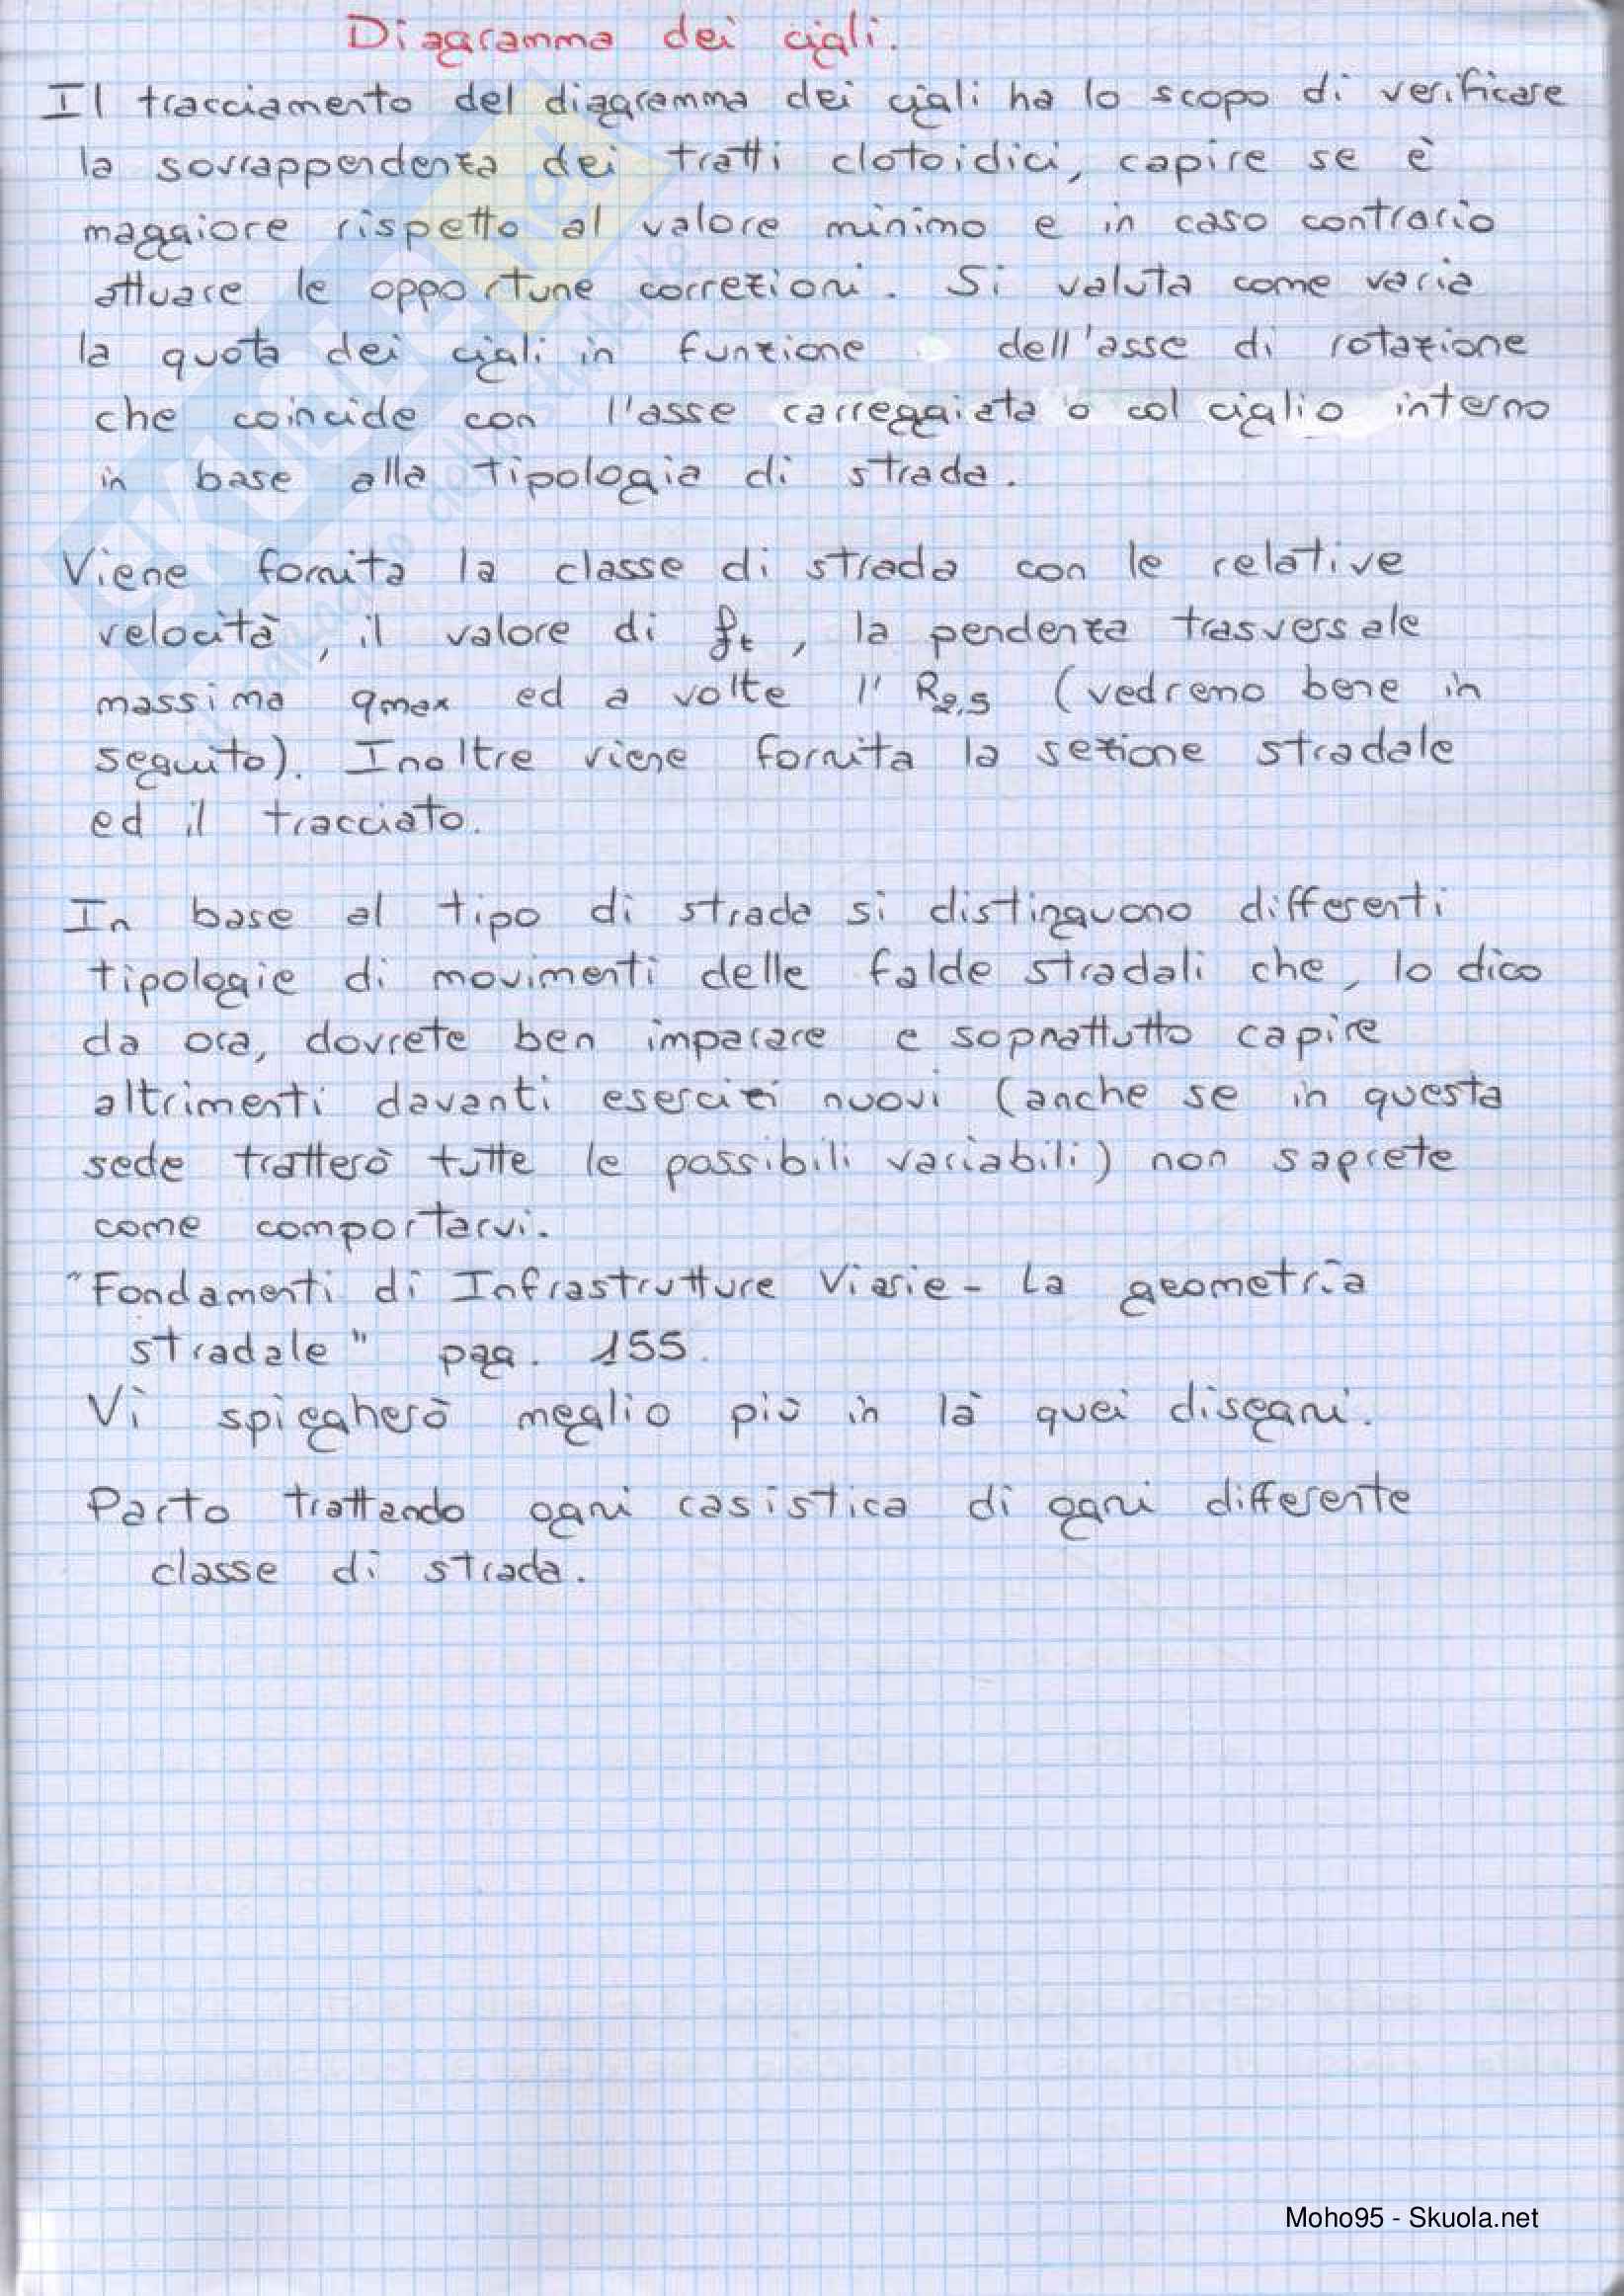 Diagramma dei cigli.
Il tracciamento del diagramma dei cigli ha lo scopo di verificare
la sovrappendenza dei tratti clotoidici, capire se è
maggiore rispetto al valore minimo e in caso contrario
attuare le opportune correzioni. Si valuta come varia
la quota dei cigli in funzione dell'asse di rotazione
che coincide con l'asse carreggiata o col ciglio interno
in base alla tipologia di strada.
Viene fornita la classe di strada con le relative
velocità, il valore di ft, la pendenza trasversale
massima qmax ed a volte l' R2,5 (vedremo bene in
seguito). Inoltre viene fornita la sezione stradale
ed il tracciato.
In base al tipo di strada si distinguono differenti
tipologie di movimenti delle falde stradali che, lo dico
da ora, dovrete ben imparare e soprattutto capire
altrimenti davanti esercizi nuovi (anche se in questa
sede tratterò tutte le possibili variabili) non saprete
come comportarvi.
"Fondamenti di Infrastrutture Viarie - La geometria
stradale" pag. 155.
Vi spiegherò meglio più in là quei disegni.
Parto trattando ogni casistica di ogni differente
classe di strada.
SKUOLA.net
Moho95 - Skuola.net